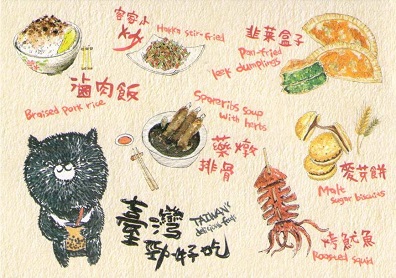 客家小炒
Hakka stir-fried
韭菜盒子
Pan-fried
leek dumplings
滷肉飯
Braised pork rice
Spareribs soup
with herbs
藥燉
排骨
麥芽餅
Malt
sugar biscuits
臺灣
勁好吃
TAIWAN'S
delicious food
烤魷魚
Roasted squid